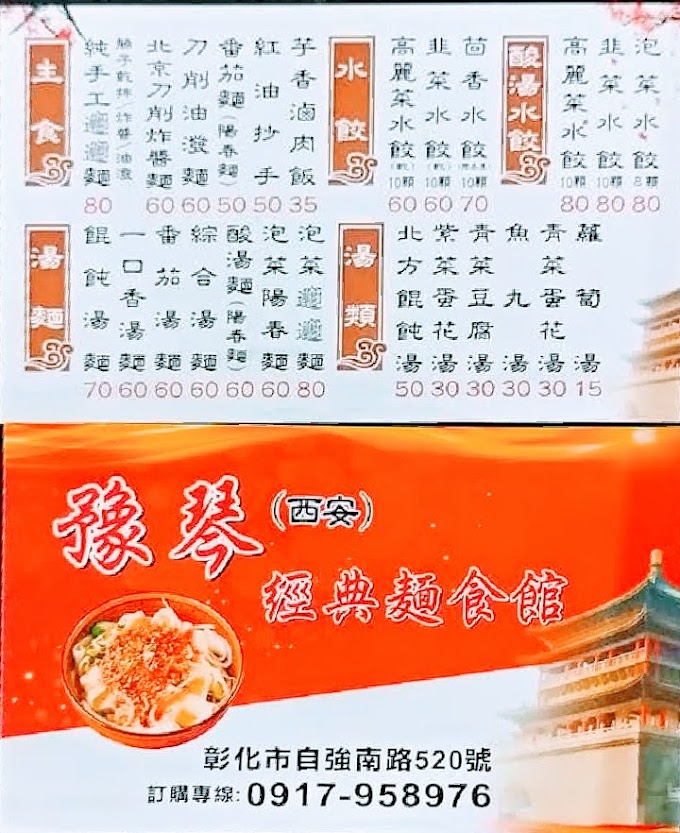 主食
純手工𰻝𰻝麵
臊子乾拌/炸醬/油潑
80
北京刀削炸醬麵
60
刀削油潑麵
60
番茄麵(陽春麵)
50
紅油抄手
50
芋香滷肉飯
35
水餃
高麗菜水餃
10顆
60
韭菜水餃
10顆
60
茴香水餃
10顆
70
酸湯水餃
高麗菜水餃
10顆
80
韭菜水餃
10顆
80
泡菜水餃
8顆
80
湯麵
餛飩湯麵
70
一口香湯麵
60
番茄湯麵
60
綜合湯麵
60
酸湯麵(陽春麵)
60
泡菜陽春麵
60
泡菜𰻝𰻝麵
80
湯類
北方餛飩湯
50
紫菜蛋花湯
30
青菜豆腐湯
30
魚丸湯
30
青菜蛋花湯
30
蘿蔔湯
15
豫琴(西安)
經典麵食館
彰化市自強南路520號
訂購專線:0917-958976